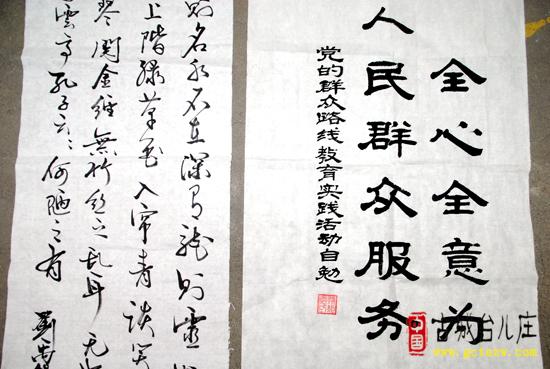 全心全意为
人民群众服务
党的群众路线教育实践活动自勉
则名水不在深有龍则靈
上階绿草色入帘青谈笑
琴阅金经無竹丝之乱耳无
雲亭孔子云何陋之有
中国
古城台儿庄